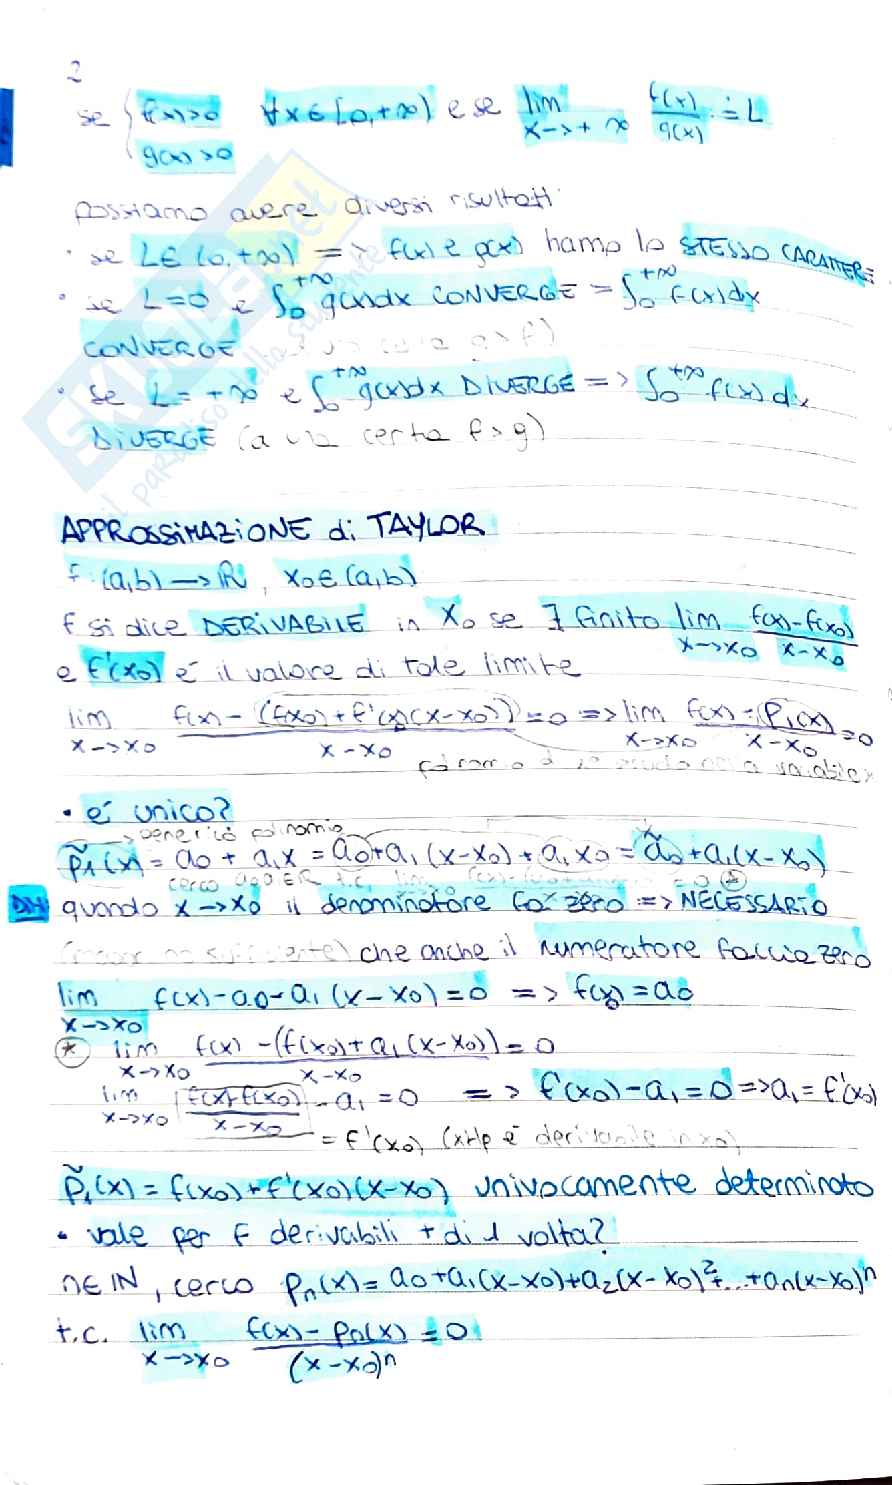 2
se { f(x)>0 ∀x∈[0,+∞) e se lim x->+∞ f(x)/g(x) = L
g(x)>0
possiamo avere diversi risultati:
• se L∈(0,+∞) => f(x) e g(x) hanno lo STESSO CARATTERE
• se L=0 e ∫₀^+∞ g(x)dx CONVERGE => ∫₀^+∞ f(x)dx
CONVERGE g>f)
• se L=+∞ e ∫₀^+∞ g(x)dx DIVERGE => ∫₀^+∞ f(x)dx
DIVERGE (a una certa f>g)
SKUOLA.net
il paradiso dello studente
APPROSSIMAZIONE di TAYLOR
f:(a,b)->ℝ, x₀∈(a,b)
f si dice DERIVABILE in x₀ se ∃ finito lim x->x₀ f(x)-f(x₀)/x-x₀
e f'(x₀) è il valore di tale limite
lim x->x₀ f(x)-(f(x₀)+f'(x₀)(x-x₀))/x-x₀ =0 => lim x->x₀ f(x)-P₁(x)/x-x₀ =0
variabile x
• è unico?
-> generico polinomio
p̃₁(x)= a₀+a₁x = a₀+a₁(x-x₀)+a₁x₀ = ã₀+a₁(x-x₀)
cerco
DIM quando x->x₀ il denominatore fa zero => NECESSARIO
che anche il numeratore faccia zero
lim x->x₀ f(x)-a₀-a₁(x-x₀)=0 => f(x₀)=a₀
(*) lim x->x₀ f(x)-(f(x₀)+a₁(x-x₀))/x-x₀ =0
lim x->x₀ f(x)-f(x₀)/x-x₀ -a₁=0 => f'(x₀)-a₁=0 => a₁=f'(x₀)
= f'(x₀) (x Hp è derivabile in x₀)
p̃₁(x)= f(x₀)+f'(x₀)(x-x₀) univocamente determinato
• vale per f derivabili + di 1 volta?
n∈ℕ, cerco pₙ(x)= a₀+a₁(x-x₀)+a₂(x-x₀)²+...+aₙ(x-x₀)ⁿ
t.c. lim x->x₀ f(x)-pₙ(x)/(x-x₀)ⁿ =0